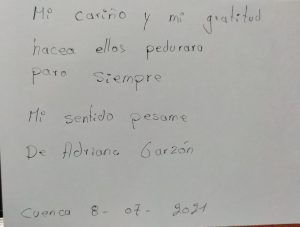 Mi cariño y mi gratitud
hacea ellos pedurara
para siempre
Mi sentido pesame
De Adriana Garzón
Cuenca 8 - 07 - 2021